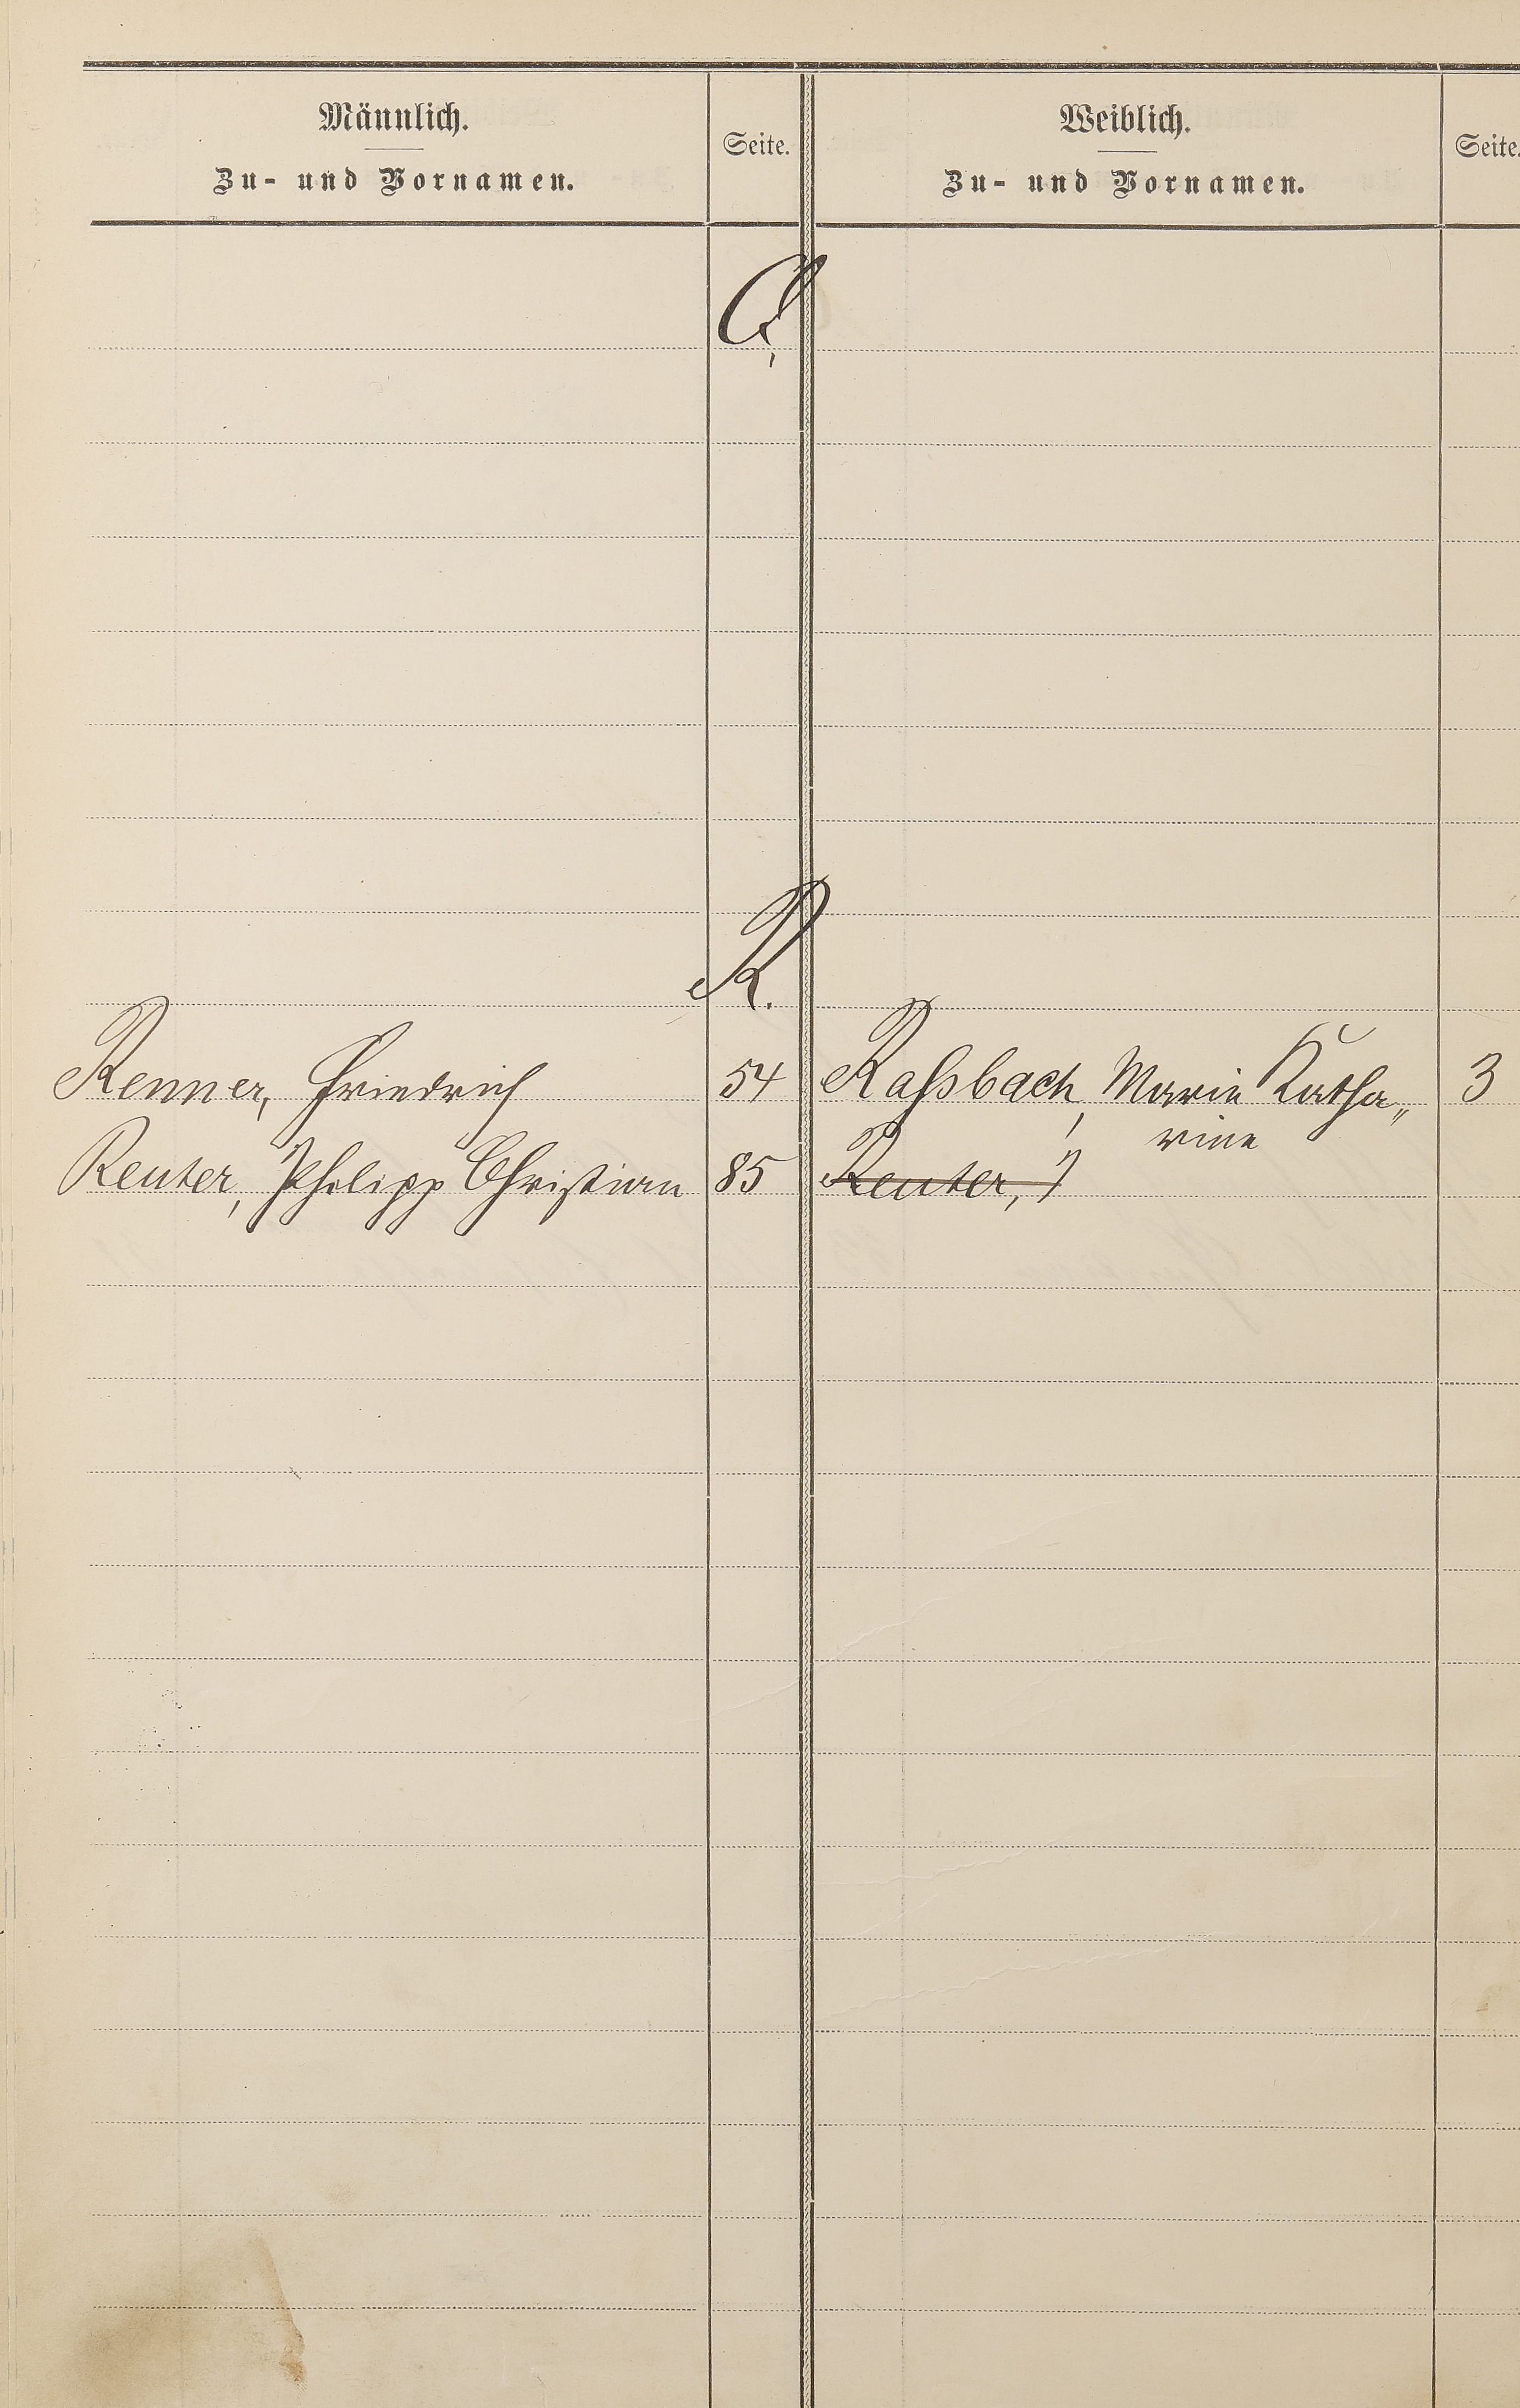 Männlich.
Zu- und Vornamen.
Seite.
Weiblich.
Zu- und Vornamen.
Seite.
Q,
R.
Renner, Friedrich 54
Raßbach, Marie Katha„ 3
rine
Reuter, Philipp Christian 85
Reuter,